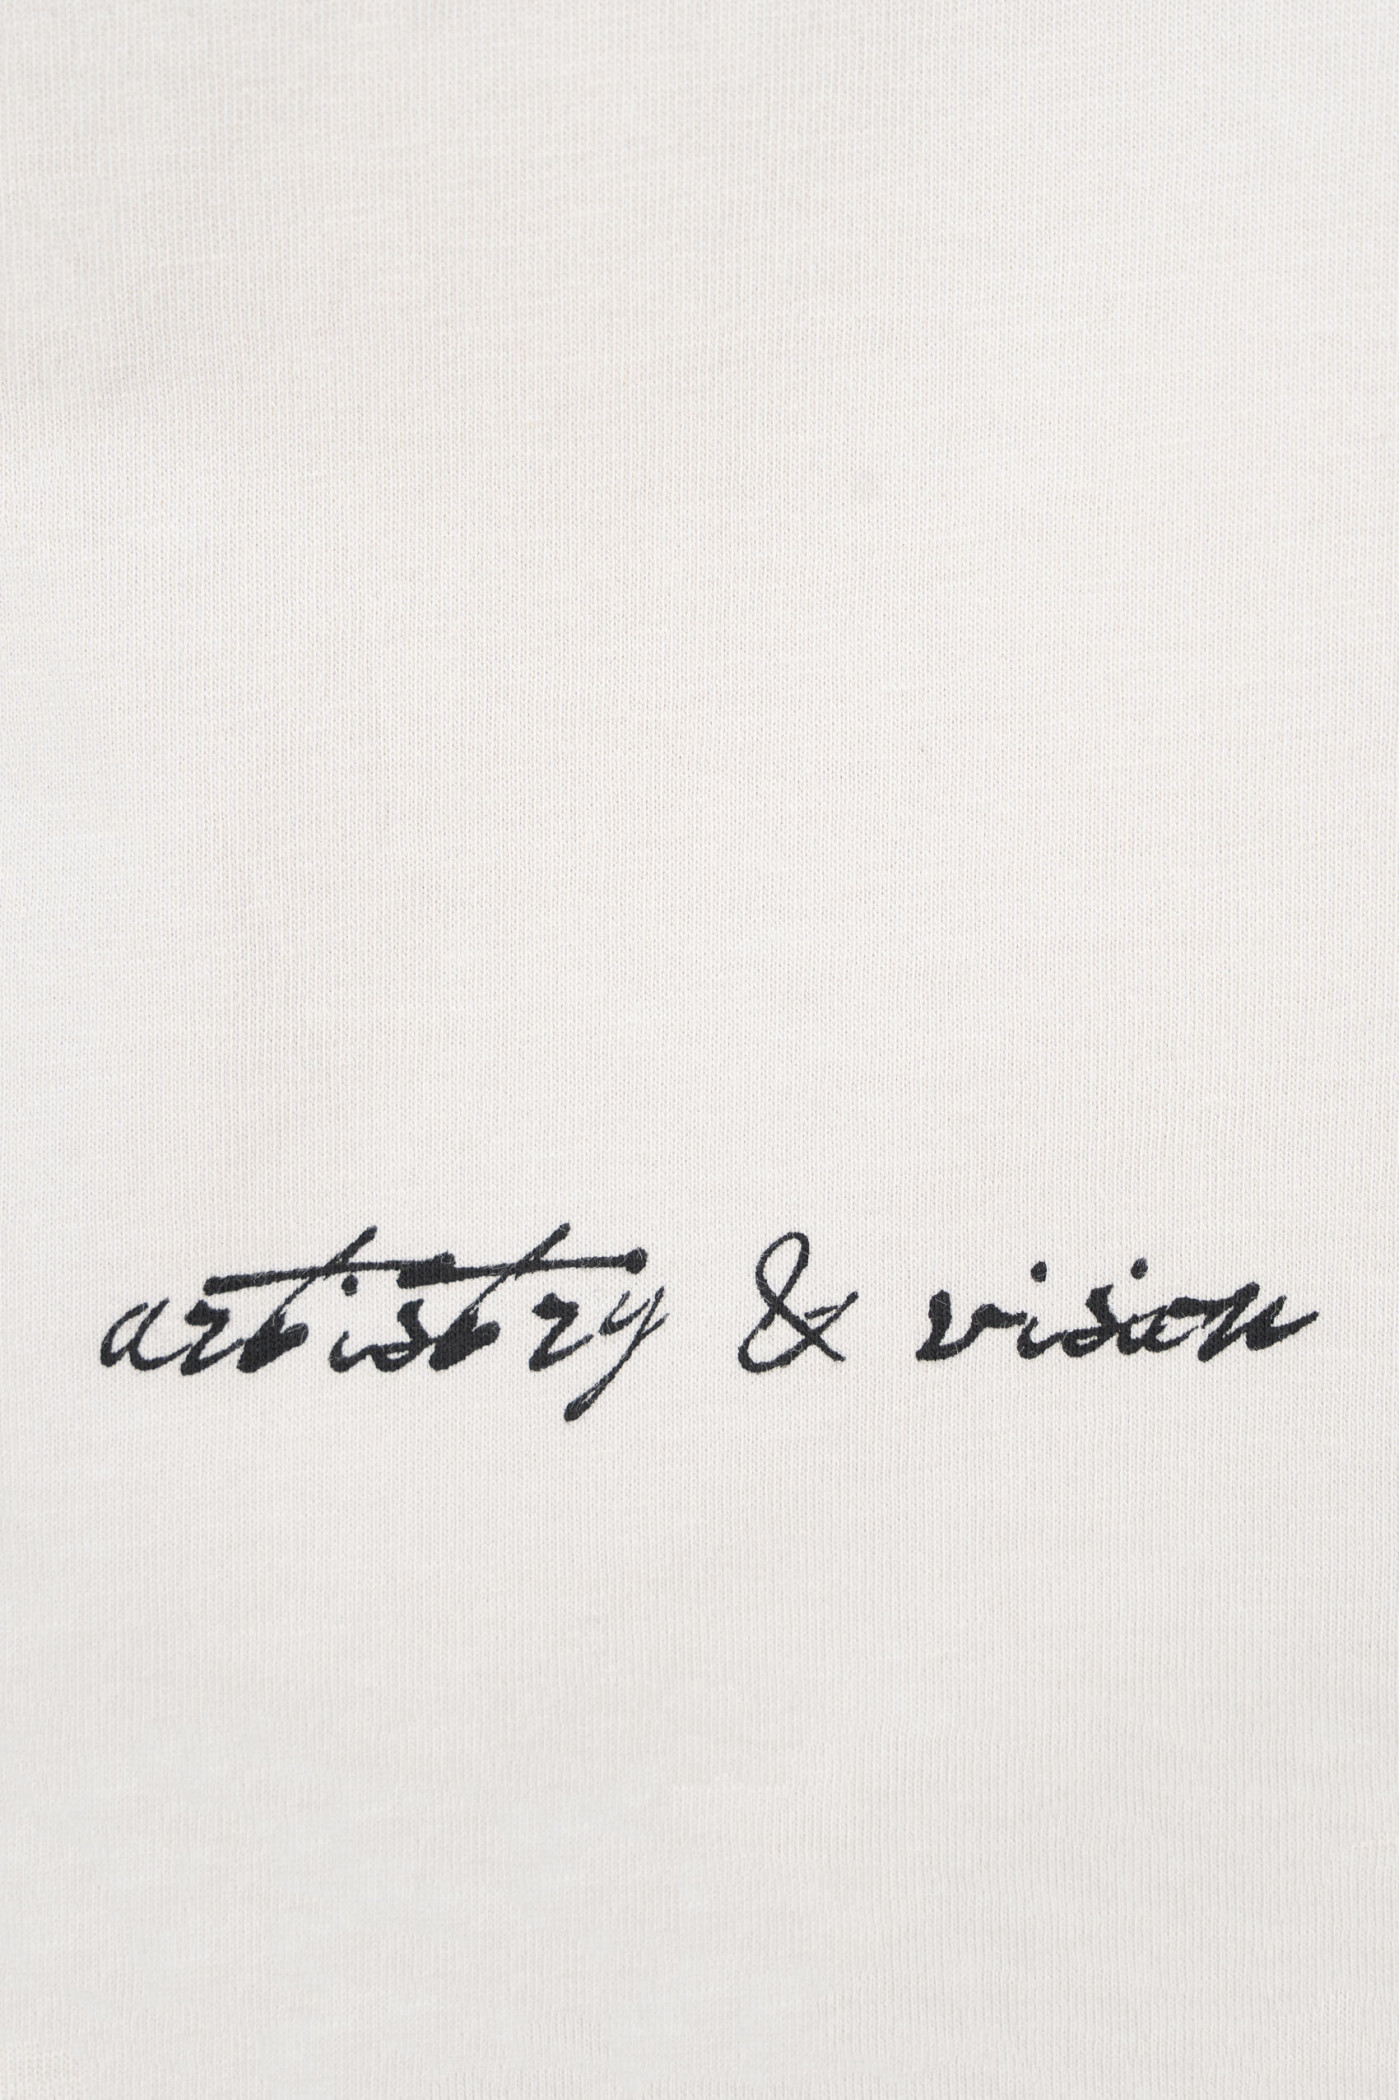 artistry & vision